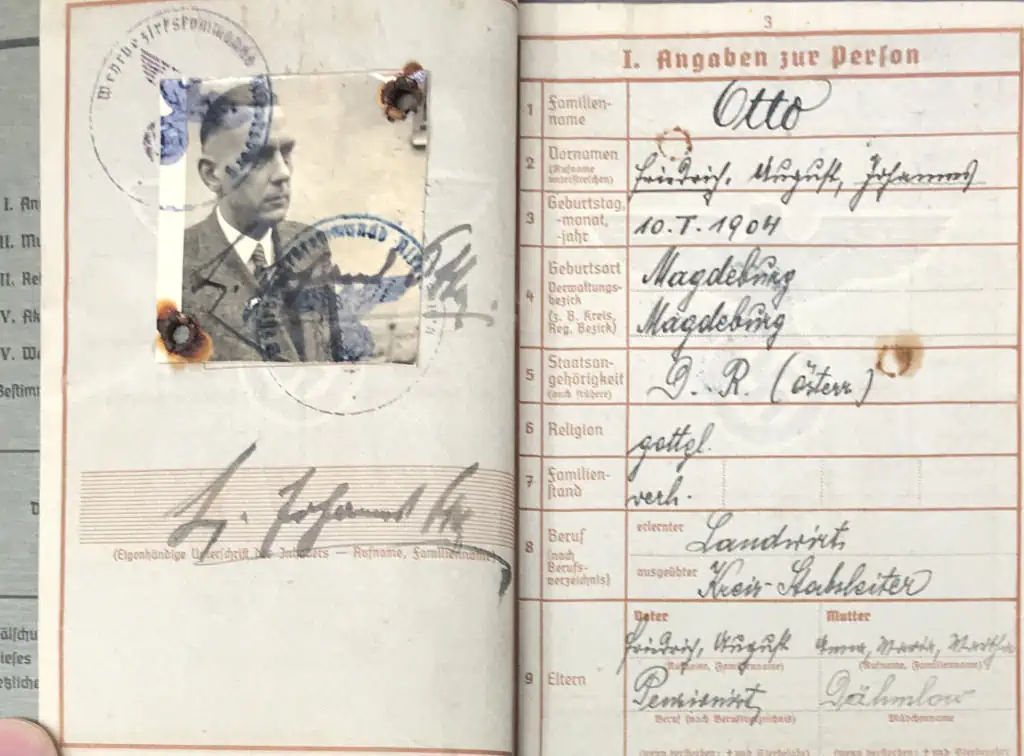 I. An
II. Mu
II. Re
V. Ak
V. We
Bestimm
älschu
ieses
etzliche
Wehrbezirkskommando
(Eigenhändige Unterschrift des Inhabers — Rufname, Familienname)
3
I. Angaben zur Person
1 Familien-
name
Otto
2 Vornamen
(Rufname
unterstreichen)
Friedrich, August, Johannes
3 Geburtstag,
-monat,
-jahr
10. I. 1904
4 Geburtsort
Verwaltungs-
bezirk
(z. B. Kreis,
Reg. Bezirk)
Magdeburg
Magdeburg
5 Staatsan-
gehörigkeit
(auch frühere)
D. R. (österr.)
6 Religion
gottgl.
7 Familien-
stand
verh.
8 Beruf
(nach
Berufs-
verzeichnis)
erlernter
Landwirt
ausgeübter
Kreis-Stabsleiter
9 Eltern
Vater
Mutter
Friedrich, August
Anna, Maria, Martha
(Rufname, Familienname)
(Rufname, Familienname)
Pensionist
Dähmlow
Beruf (nach Berufsverzeichnis)
Mädchenname
(wenn verstorben: † und Sterbejahr)
(wenn verstorben: † und Sterbejahr)